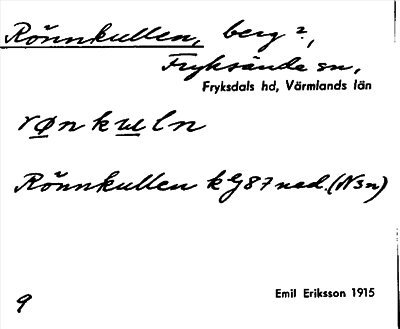 Rönnkullen, berg?,
Fryksände sn,
Fryksdals hd, Värmlands län
rønkuln
Rönnkullen kG87nad.(NSn)
9
Emil Eriksson 1915